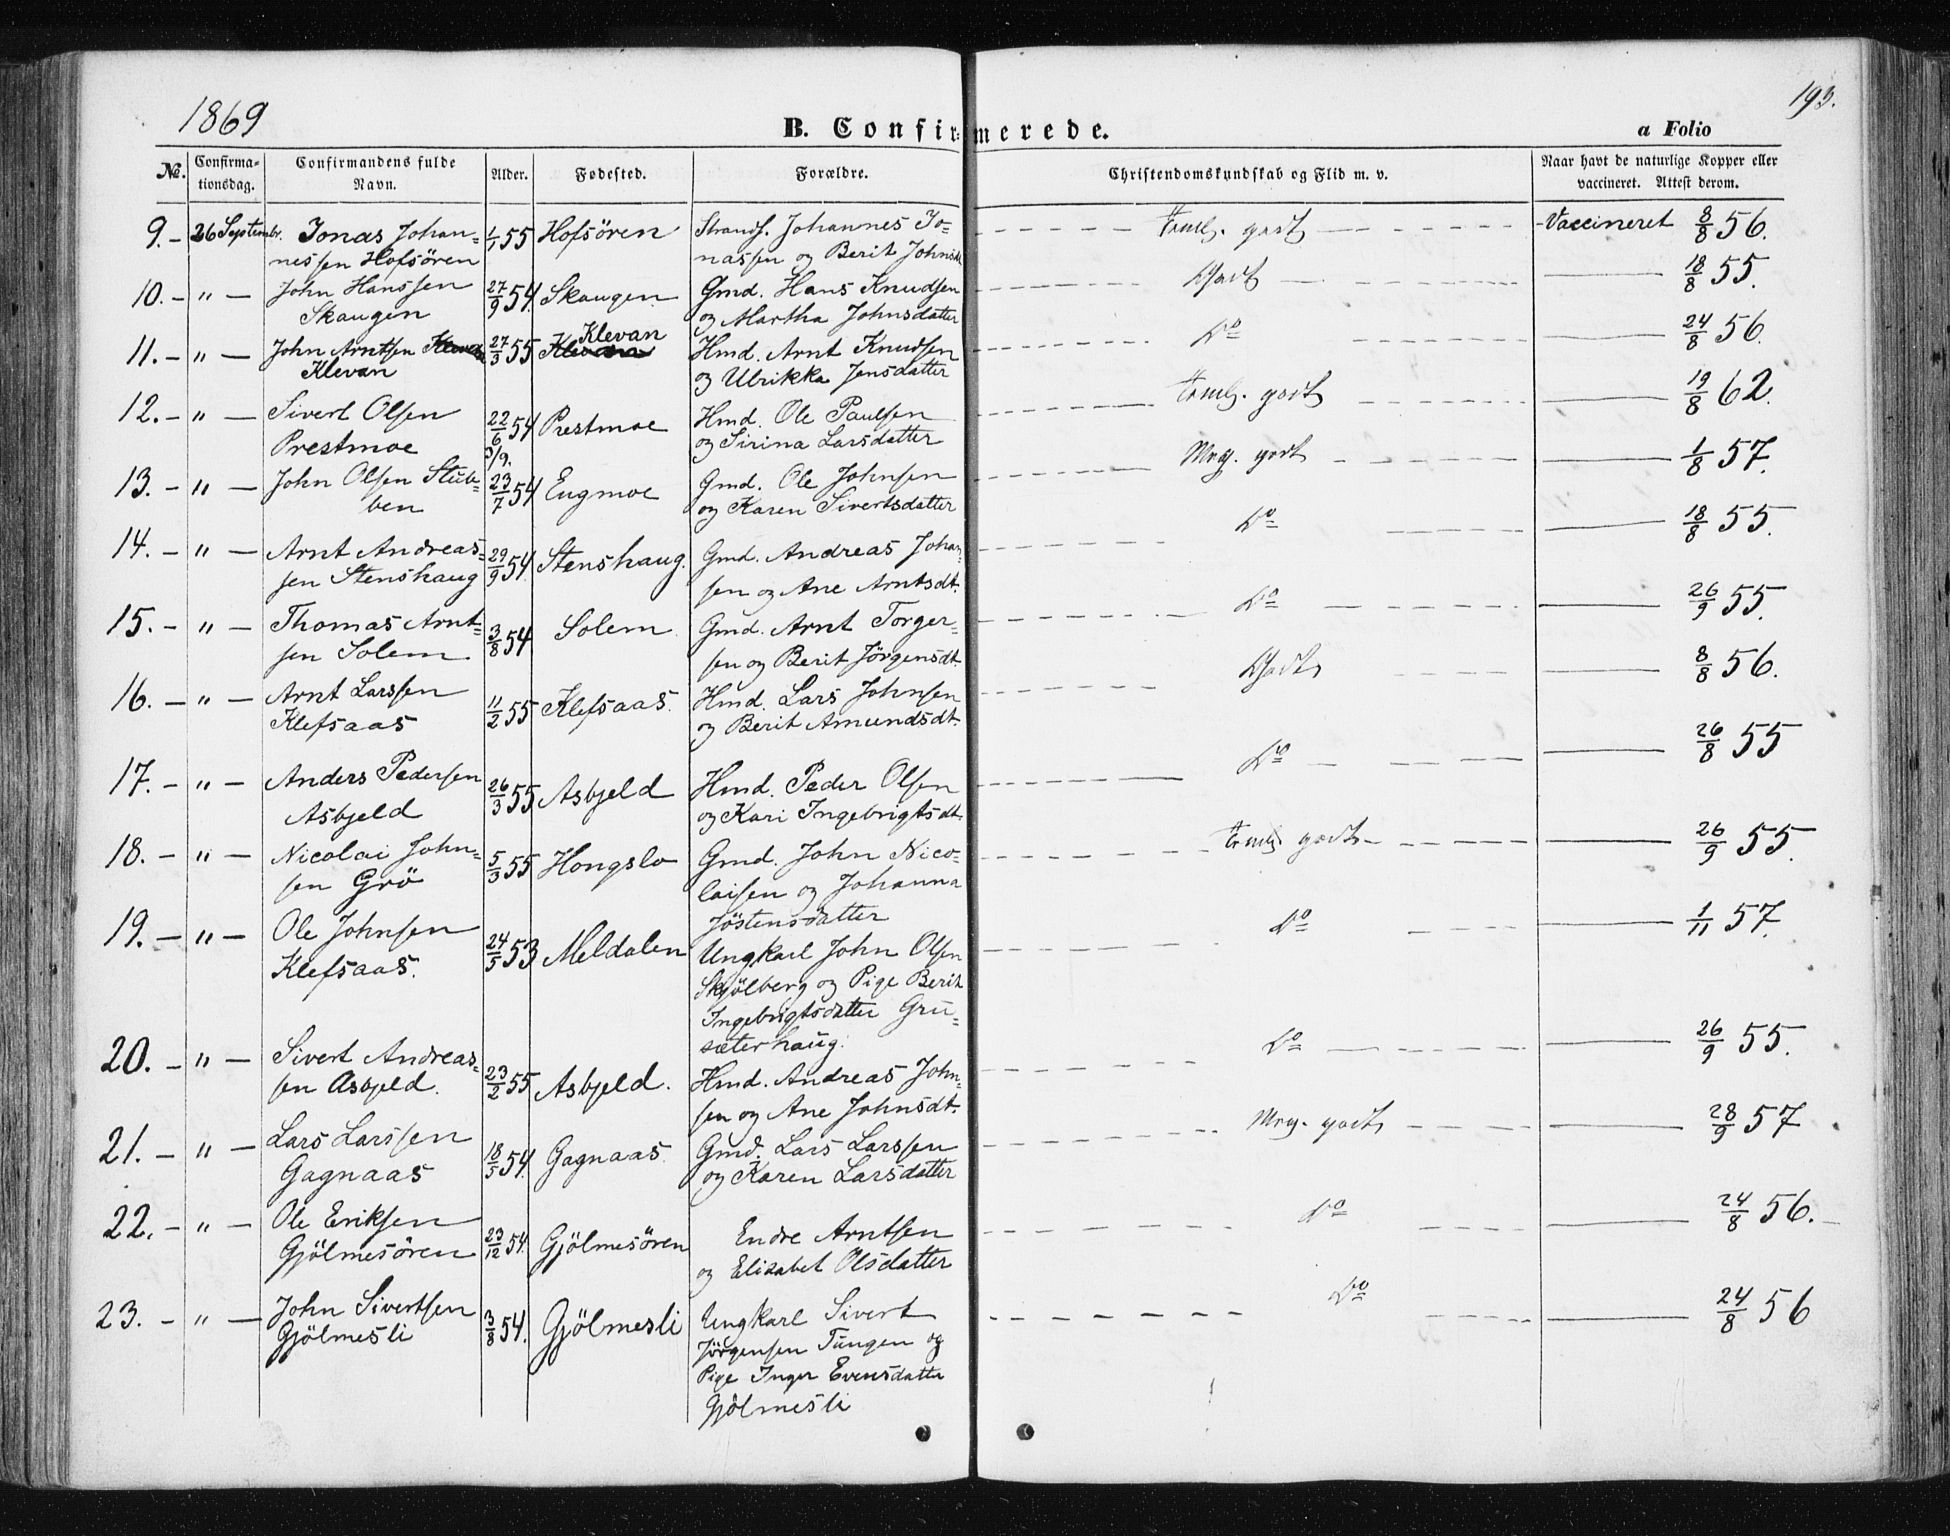 1869
193.
B. Confirmerede.
a Folio
No. Confirmationsdag. Confirmandens fulde Navn. Alder. Fødested. Forældre. Christendomskundskab og Flid m. v. Naar havt de naturlige Kopper eller vaccineret. Attest derom.
9. - 26 Septembr. Jonas Johan- 1/1 55 Hofsören Strands. Johannes Jo- Teml. godt - Vaccineret 8/8 56.
nessen Hofsören nassen og Berit Johnsdt.
10. - " - John Hanssen 27/9 54. Skaugen Gmd. Hans Knudsen Godt 18/8 55.
Skaugen og Martha Johnsdatter
11. - " - John Arntsen Klevan 27/3 55 Klevan Hmd. Arnt Knudsen Do 24/8 56.
Klevan og Ulrikka Jensdatter
12. - " - Sivert Olsen 22/6 54 Prestmoe Hmd. Ole Paulsen Teml. godt 19/8 62.
Prestmoe og Sirina Larsdatter
13. - " - John Olsen Stub- 23/7 54 Engmoe Gmd. Ole Johnsen Meg. godt 1/8 57.
ben og Karen Sivertsdatter
14. - " - Arnt Andreas- 29/9 54. Stenshaug. Gmd. Andreas Johan- Do 18/8 55.
sen Stenshaug sen og Ane Arntsdt.
15. - " - Thomas Arnt- 3/8 54 Solem Gmd. Arnt Torger- Do 26/9 55.
sen Solem sen og Berit Jörgensdt.
16. - " - Arnt Larssen 11/2 55 Klefsaas. Hmd. Lars Johnsen Godt 8/8 56.
Klefsaas og Berit Amundsdt.
17. - " - Anders Pedersen 26/3 55 Asbjeld Hmd. Peder Olsen Do 26/8 55
Asbjeld og Kari Ingebrigtsdt.
18. - " - Nicolai John- 5/3 55 Hongslo Gmd. John Nico- Teml. godt - 26/9 55.
sen Grö laisen og Johanna
Jöstensdatter
19. - " - Ole Johnsen 24/5 53 Meldalen Ungkarl John Olsen Do 1/11 57.
Klefsaas. Skjölberg og Pige Berit
Ingebrigtsdatter Gru-
sæterhaug.
20. - " - Sivert Andreas- 23/2 55 Asbjeld. Hmd. Andreas John- Do 26/9 55.
sen Asbjeld. sen og Ane Johnsdt.
21. - " - Lars Larssen 18/5 54. Gagnaas Gmd. Lars Larssen Meg. godt 28/9 57
Gagnaas og Karen Larsdatter
22. - " - Ole Eriksen 23/12 54. Gjölmesören Endre Arntsen Do 24/8 56.
Gjölmesören og Elisabet Olsdatter
23. - " - John Sivertsen 3/8 54. Gjölmesli Ungkarl Sivert Do 24/8 56
Gjölmesli Jörgensen Tungen og
Pige Inger Evensdatter
Gjölmesli